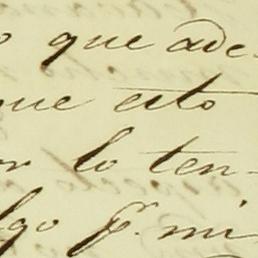 o que ade-
que esto
or lo ten-
lgo pr. mi